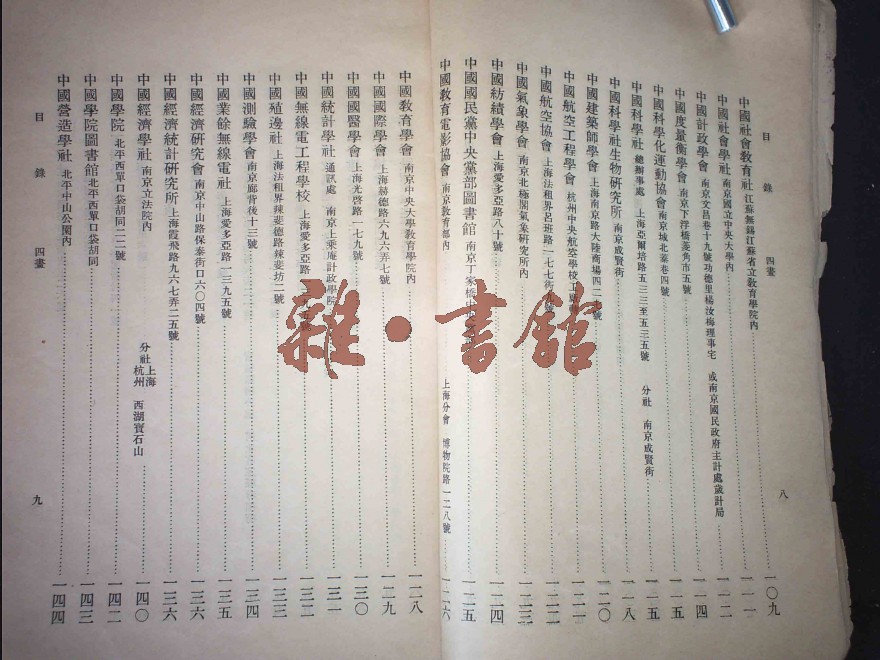 目錄 四畫 八
中國社會教育社 江蘇無錫江蘇省立教育學院內 一〇九
中國社會學社 南京國立中央大學內 一一一
中國計政學會 南京文昌巷十九號功德里楊汝梅理事宅 或南京國民政府主計處歲計局 一一四
中國度量衡學會 南京下浮橋菱角市五號 一一五
中國科學化運動協會 南京城北藥巷四號 一一五
中國科學社 總辦事處 上海亞爾培路五三三至五三五號 分社 南京成賢街 一一八
中國科學社生物研究所 南京成賢街 一二〇
中國建築師學會 上海南京路大陸商場四二 號 一二一
中國航空工程學會 杭州中央航空學校工 一二二
中國航空協會 上海法租界呂班路一七七街 號 一二三
中國氣象學會 南京北極閣氣象研究所內 一二四
中國紡績學會 上海愛多亞路八十號 一二五
中國國民黨中央黨部圖書館 南京丁家橋 一二六
中國教育電影協會 南京教育部內 上海分會 博物院路一二八號
中國教育學會 南京中央大學教育學院內 一二八
中國國際學會 上海赫德路六九六弄七號 一二九
中國國醫學會 上海光啓路一七九號 一三〇
中國統計學社 通訊處 南京上乘庵計政學院 一三一
中國無線電工程學校 上海愛多亞路 號 一三二
中國殖邊社 上海法租界辣斐德路辣斐坊二號 一三三
中國測驗學會 南京廊背後十三號 一三四
中國業餘無線電社 上海愛多亞路一三九五號 一三五
中國經濟研究會 南京中山路保泰街口六〇四號 一三六
中國經濟統計研究所 上海霞飛路九六七弄二五號 一三六
中國經濟學社 南京立法院內 分社 上海 杭州 西湖寶石山 一四〇
中國學院 北平西單口袋胡同二二號 一四二
中國學院圖書館 北平西單口袋胡同 一四三
中國營造學社 北平中山公園內 一四四
目錄 四畫 九
雜·書館